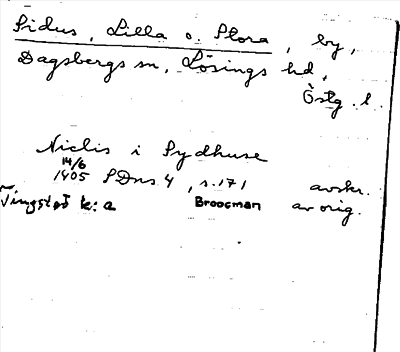 Sidus, Lilla o. Stora, by,
Dagsbergs sn, Lösings hd,
Östg. l.
Niclis i Sydhuse
14/6
1405 SDns 4, s. 171 avskr.
Tingstad k:a Broocman av orig.